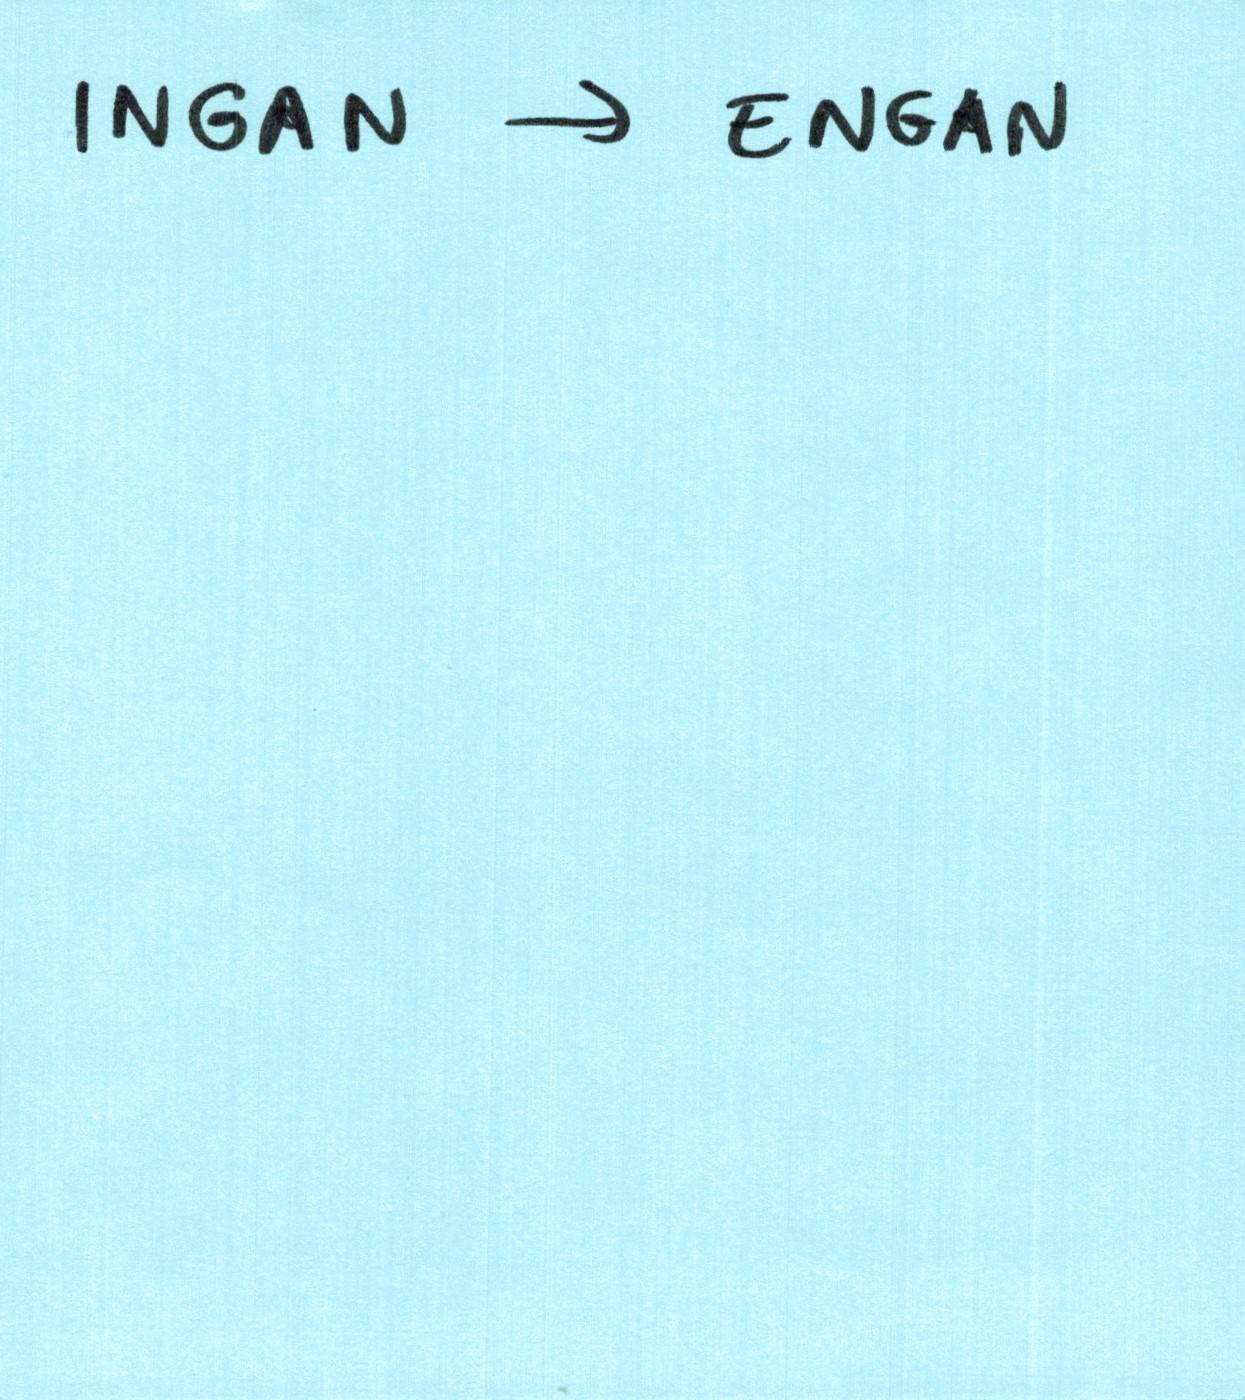 INGAN → ENGAN